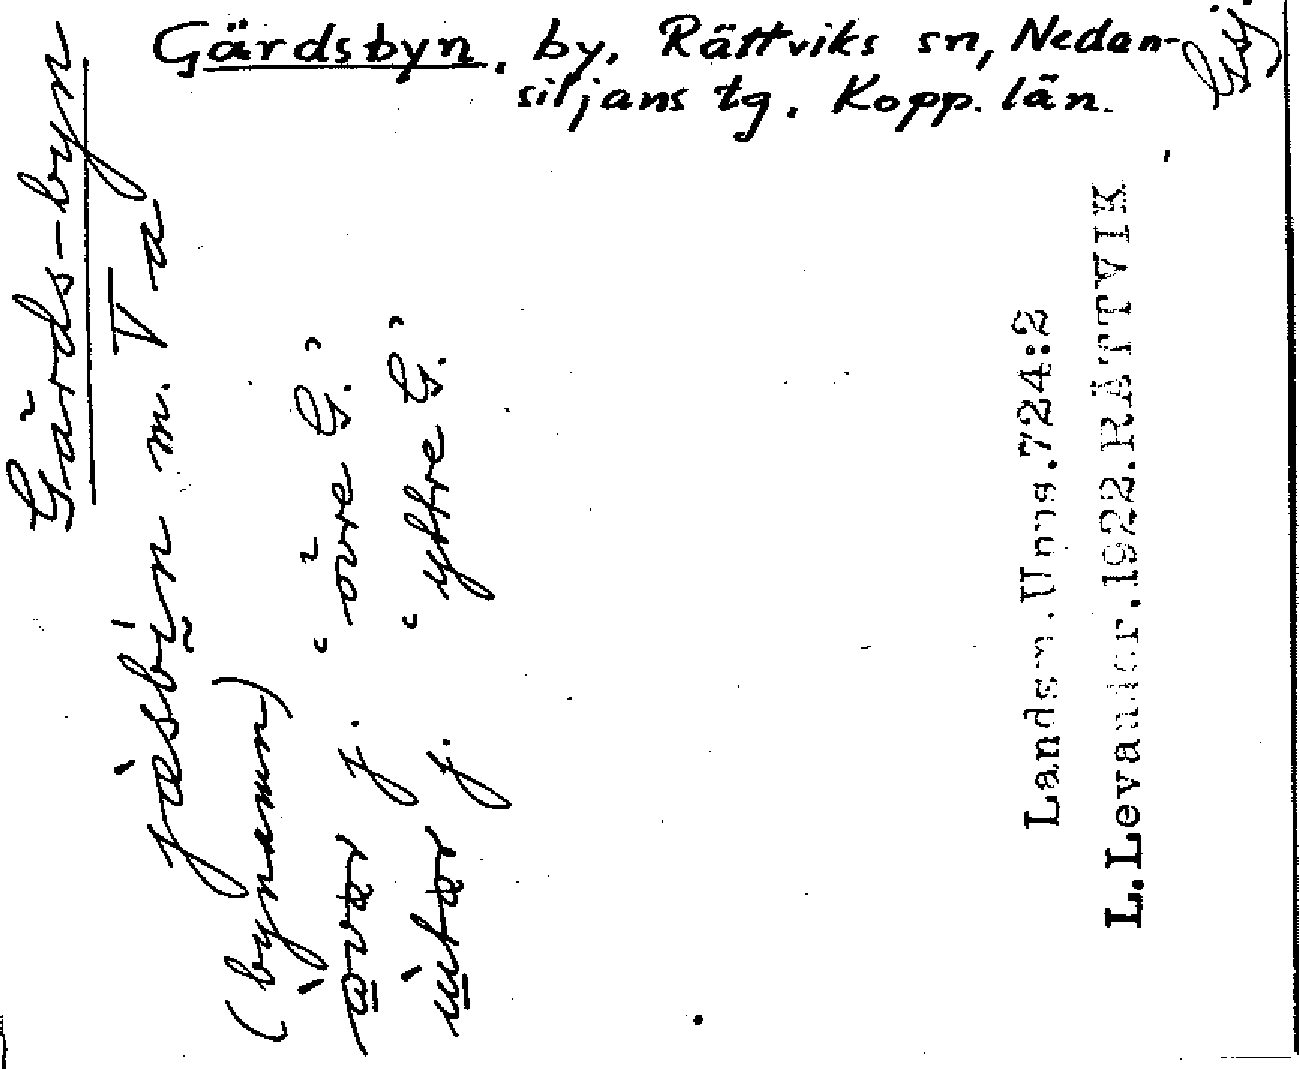 Gärdsbyn, by, Rättviks sn, Nedan-
siljans tg. Kopp. län.
Gärds-byn
jæsbyn m. V a
(bynamn)
övər j. ‘övre G.’
utər j. ‘yttre G.’
Landsm.Upps.724:2
L.Levander.1922.RÄTTVIK